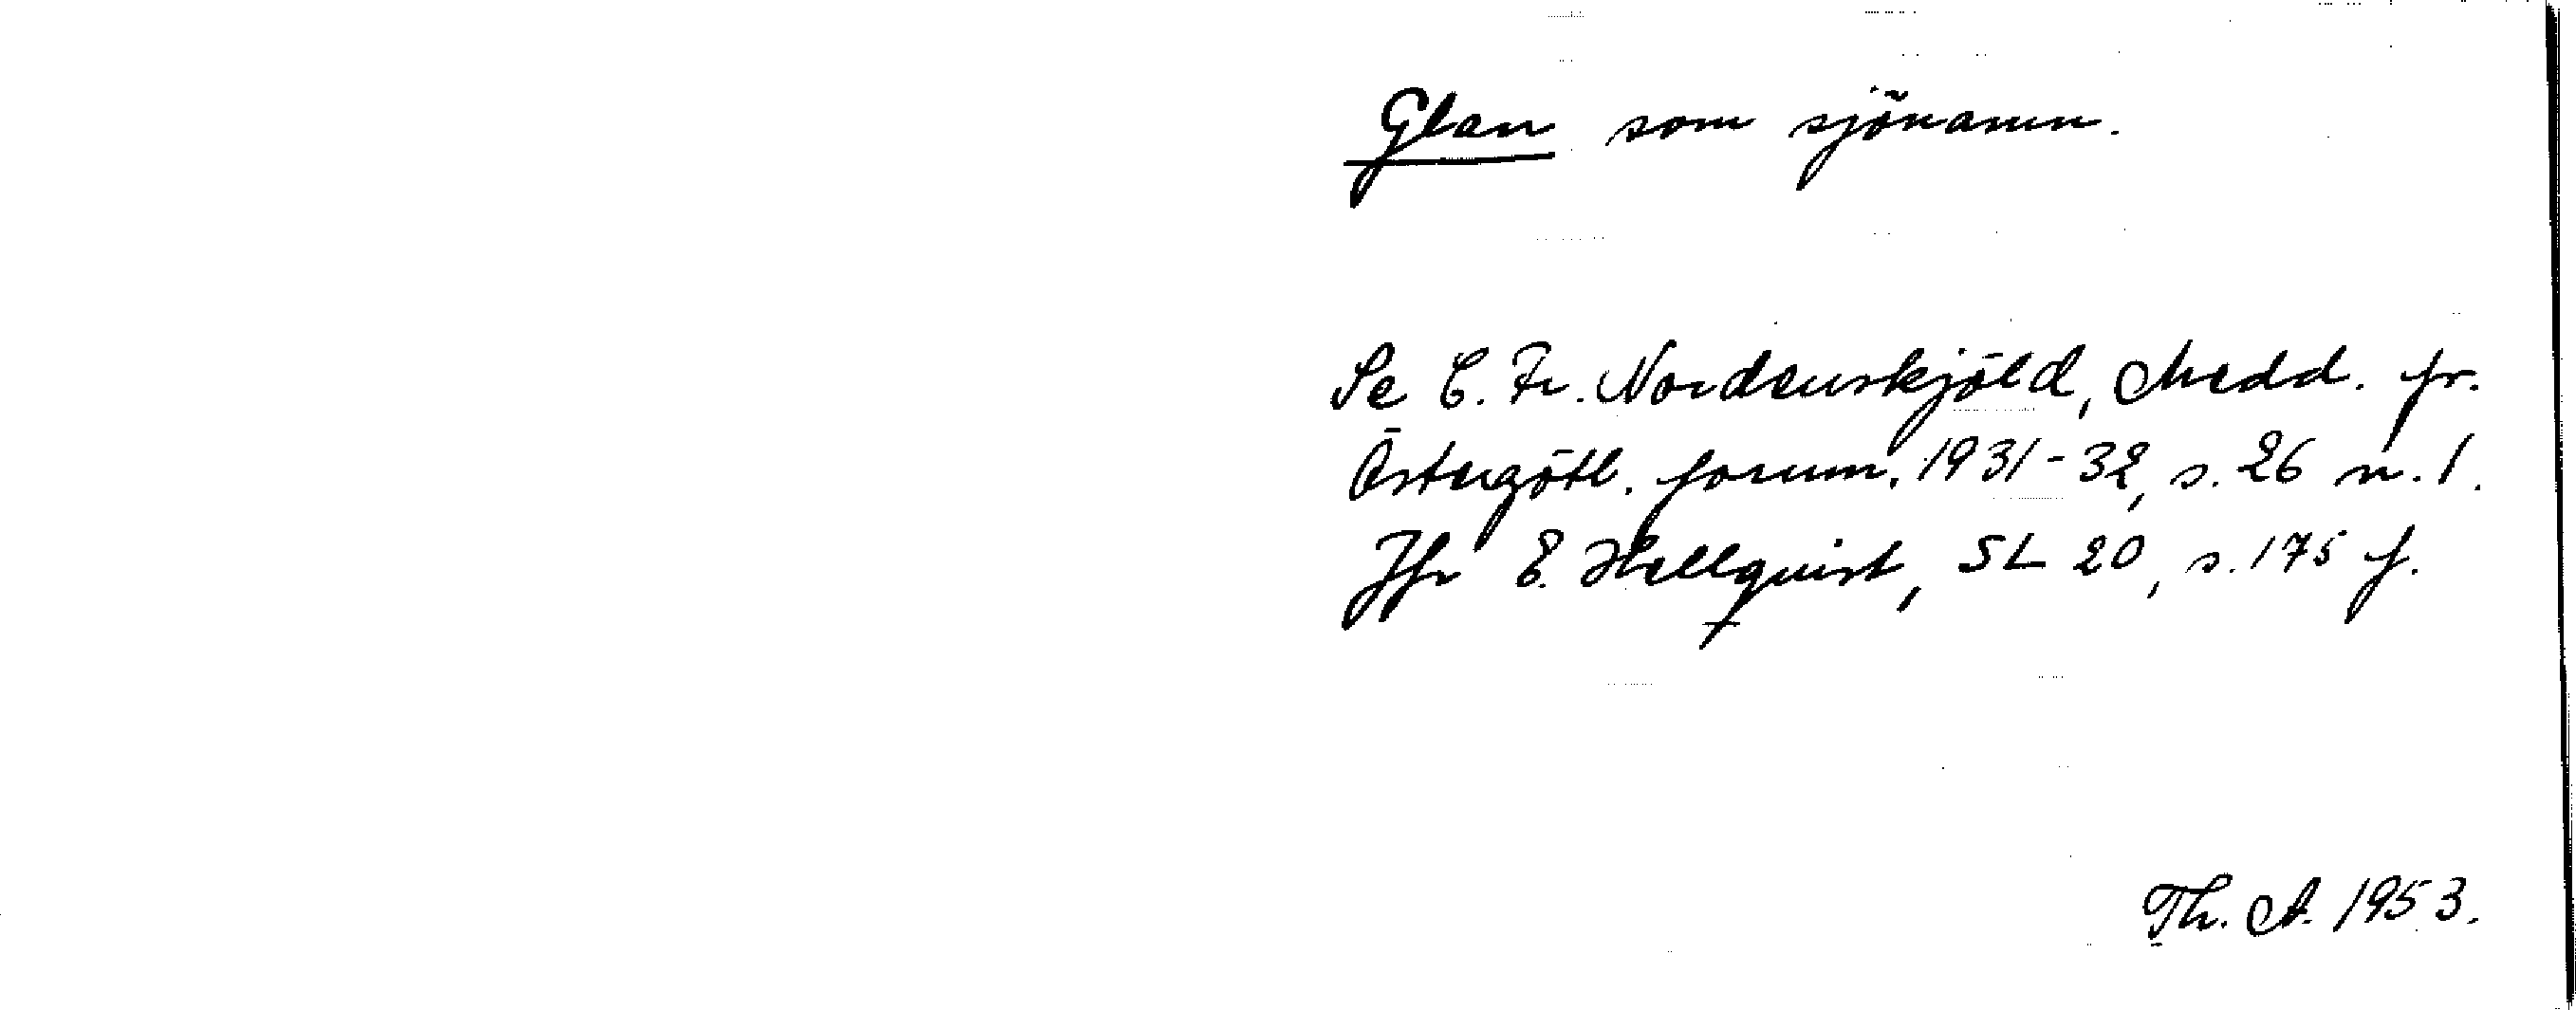 Glan som sjönamn.
Se C. Fr. Nordenskjöld, Medd. fr.
Östergötl. fornm. 1931-32, s. 26 n. 1.
Jfr E. Hellquist, SL 20, s. 175 f.
Th. A. 1953.